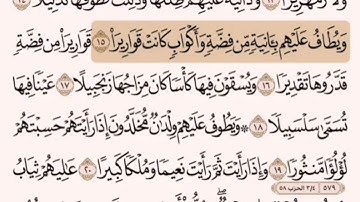 وَيُطَافُ عَلَيْهِم بِـَٔانِيَةٍ مِّن فِضَّةٍ وَأَكْوَابٍ كَانَتْ قَوَارِيرَا۠ ١٥ قَوَارِيرَا۟ مِن فِضَّةٍ
قَدَّرُوهَا تَقْدِيرًا ١٦ وَيُسْقَوْنَ فِيهَا كَأْسًا كَانَ مِزَاجُهَا زَنجَبِيلًا ١٧ عَيْنًا فِيهَا
تُسَمَّىٰ سَلْسَبِيلًا ١٨ ۞ وَيَطُوفُ عَلَيْهِمْ وِلْدَٰنٌ مُّخَلَّدُونَ إِذَا رَأَيْتَهُمْ حَسِبْتَهُمْ
لُؤْلُؤًا مَّنثُورًا ١٩ وَإِذَا رَأَيْتَ ثَمَّ رَأَيْتَ نَعِيمًا وَمُلْكًا كَبِيرًا ٢٠ عَلِيَهُمْ ثِيَابُ
٥٧٩ ٣/٤ الحزب ٥٨